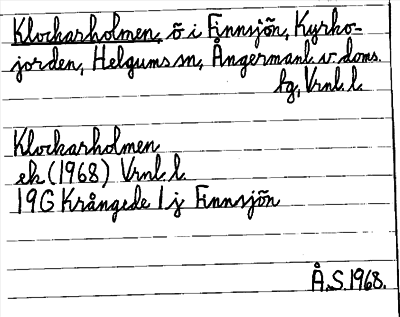 Klockarholmen, ö i Finnsjön, Kyrko-
jorden, Helgums sn, Ångermanl. v. doms.
lg, Vrnl. l.
Klockarholmen
ek (1968) Vrnl. l.
19G Krångede 1j Finnsjön
Å.S. 1968.